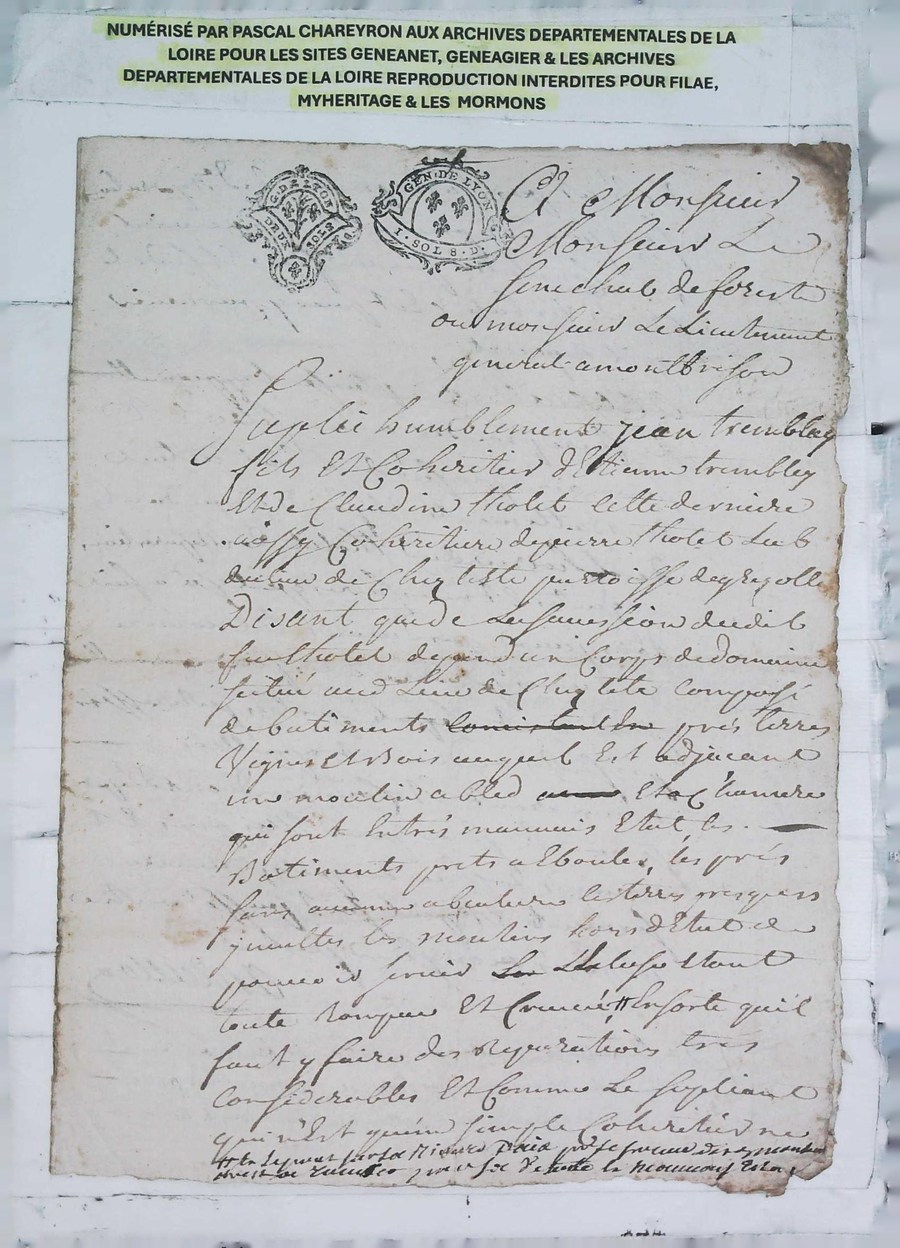 NUMÉRISÉ PAR PASCAL CHAREYRON AUX ARCHIVES DEPARTEMENTALES DE LA
LOIRE POUR LES SITES GENEANET, GENEAGIER & LES ARCHIVES
DEPARTEMENTALES DE LA LOIRE REPRODUCTION INTERDITES POUR FILAE,
MYHERITAGE & LES MORMONS
G. DE LYON
DEUX SOLS
GEN. DE LYON
1. SOL 8. D.
A Monsieur
Monsieur Le
senechal de forest
ou monsieur Le Lieutenant
general a montbrison
Suplie humblement jean tremblay
fils Et Coheritier d'Etienne trembley
Et de Claudine tholet cette derniere
aussy Coheritiere de pierre tholet
du lieu de paroisse de grezolle
Disant que de La succession dudit
feu tholet depend un Corps de domaine
situé aud Lieu de composé
de batiments prés terres
Vignes Et Bois auquel Est adjacant
un moulin a bled Et a Chanvre
qui sont En trés mauvais Etat, les
Batiments prets a Eboules, les prés
sans aucune culture les terres presques
incultes les moulins hors d'Etat de
pouvoir servir L'Ecluse Etant
toute rompue Et Ensorte qu'il
faut y faire des Reparations trés
considerables Et Comme Le supliant
qui n'Est qu'un simple Coheritier ne